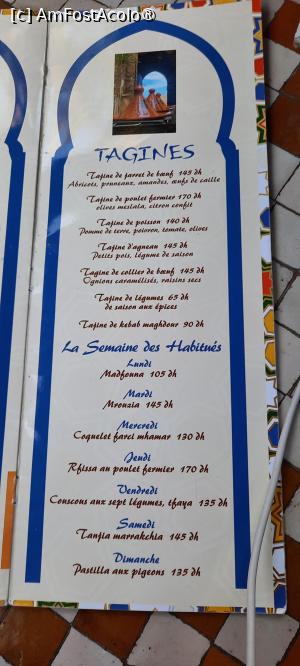 [c] AmFostAcolo®
TAGINES
Tajine de jarret de bœuf 145 dh
Abricots, pruneaux, amandes, œufs de caille
Tajine de poulet fermier 170 dh
olives meslala, citron confit
Tajine de poisson 140 dh
Pomme de terre, poivron, tomate, olives
Tajine d'agneau 145 dh
Petits pois, légume de saison
Tagine de collier de bœuf 145 dh
Ognions caramélisés, raisins secs
Tajine de légumes 65 dh
de saison aux épices
Tajine de kebab maghdour 90 dh
La Semaine des Habitués
Lundi
Madfouna 105 dh
Mardi
Mrouzia 145 dh
Mercredi
Coquelet farci mhamar 130 dh
Jeudi
Rfissa au poulet fermier 170 dh
Vendredi
Couscous aux sept légumes, tfaya 135 dh
Samedi
Tanjia marrakchia 145 dh
Dimanche
Pastilla aux pigeons 135 dh